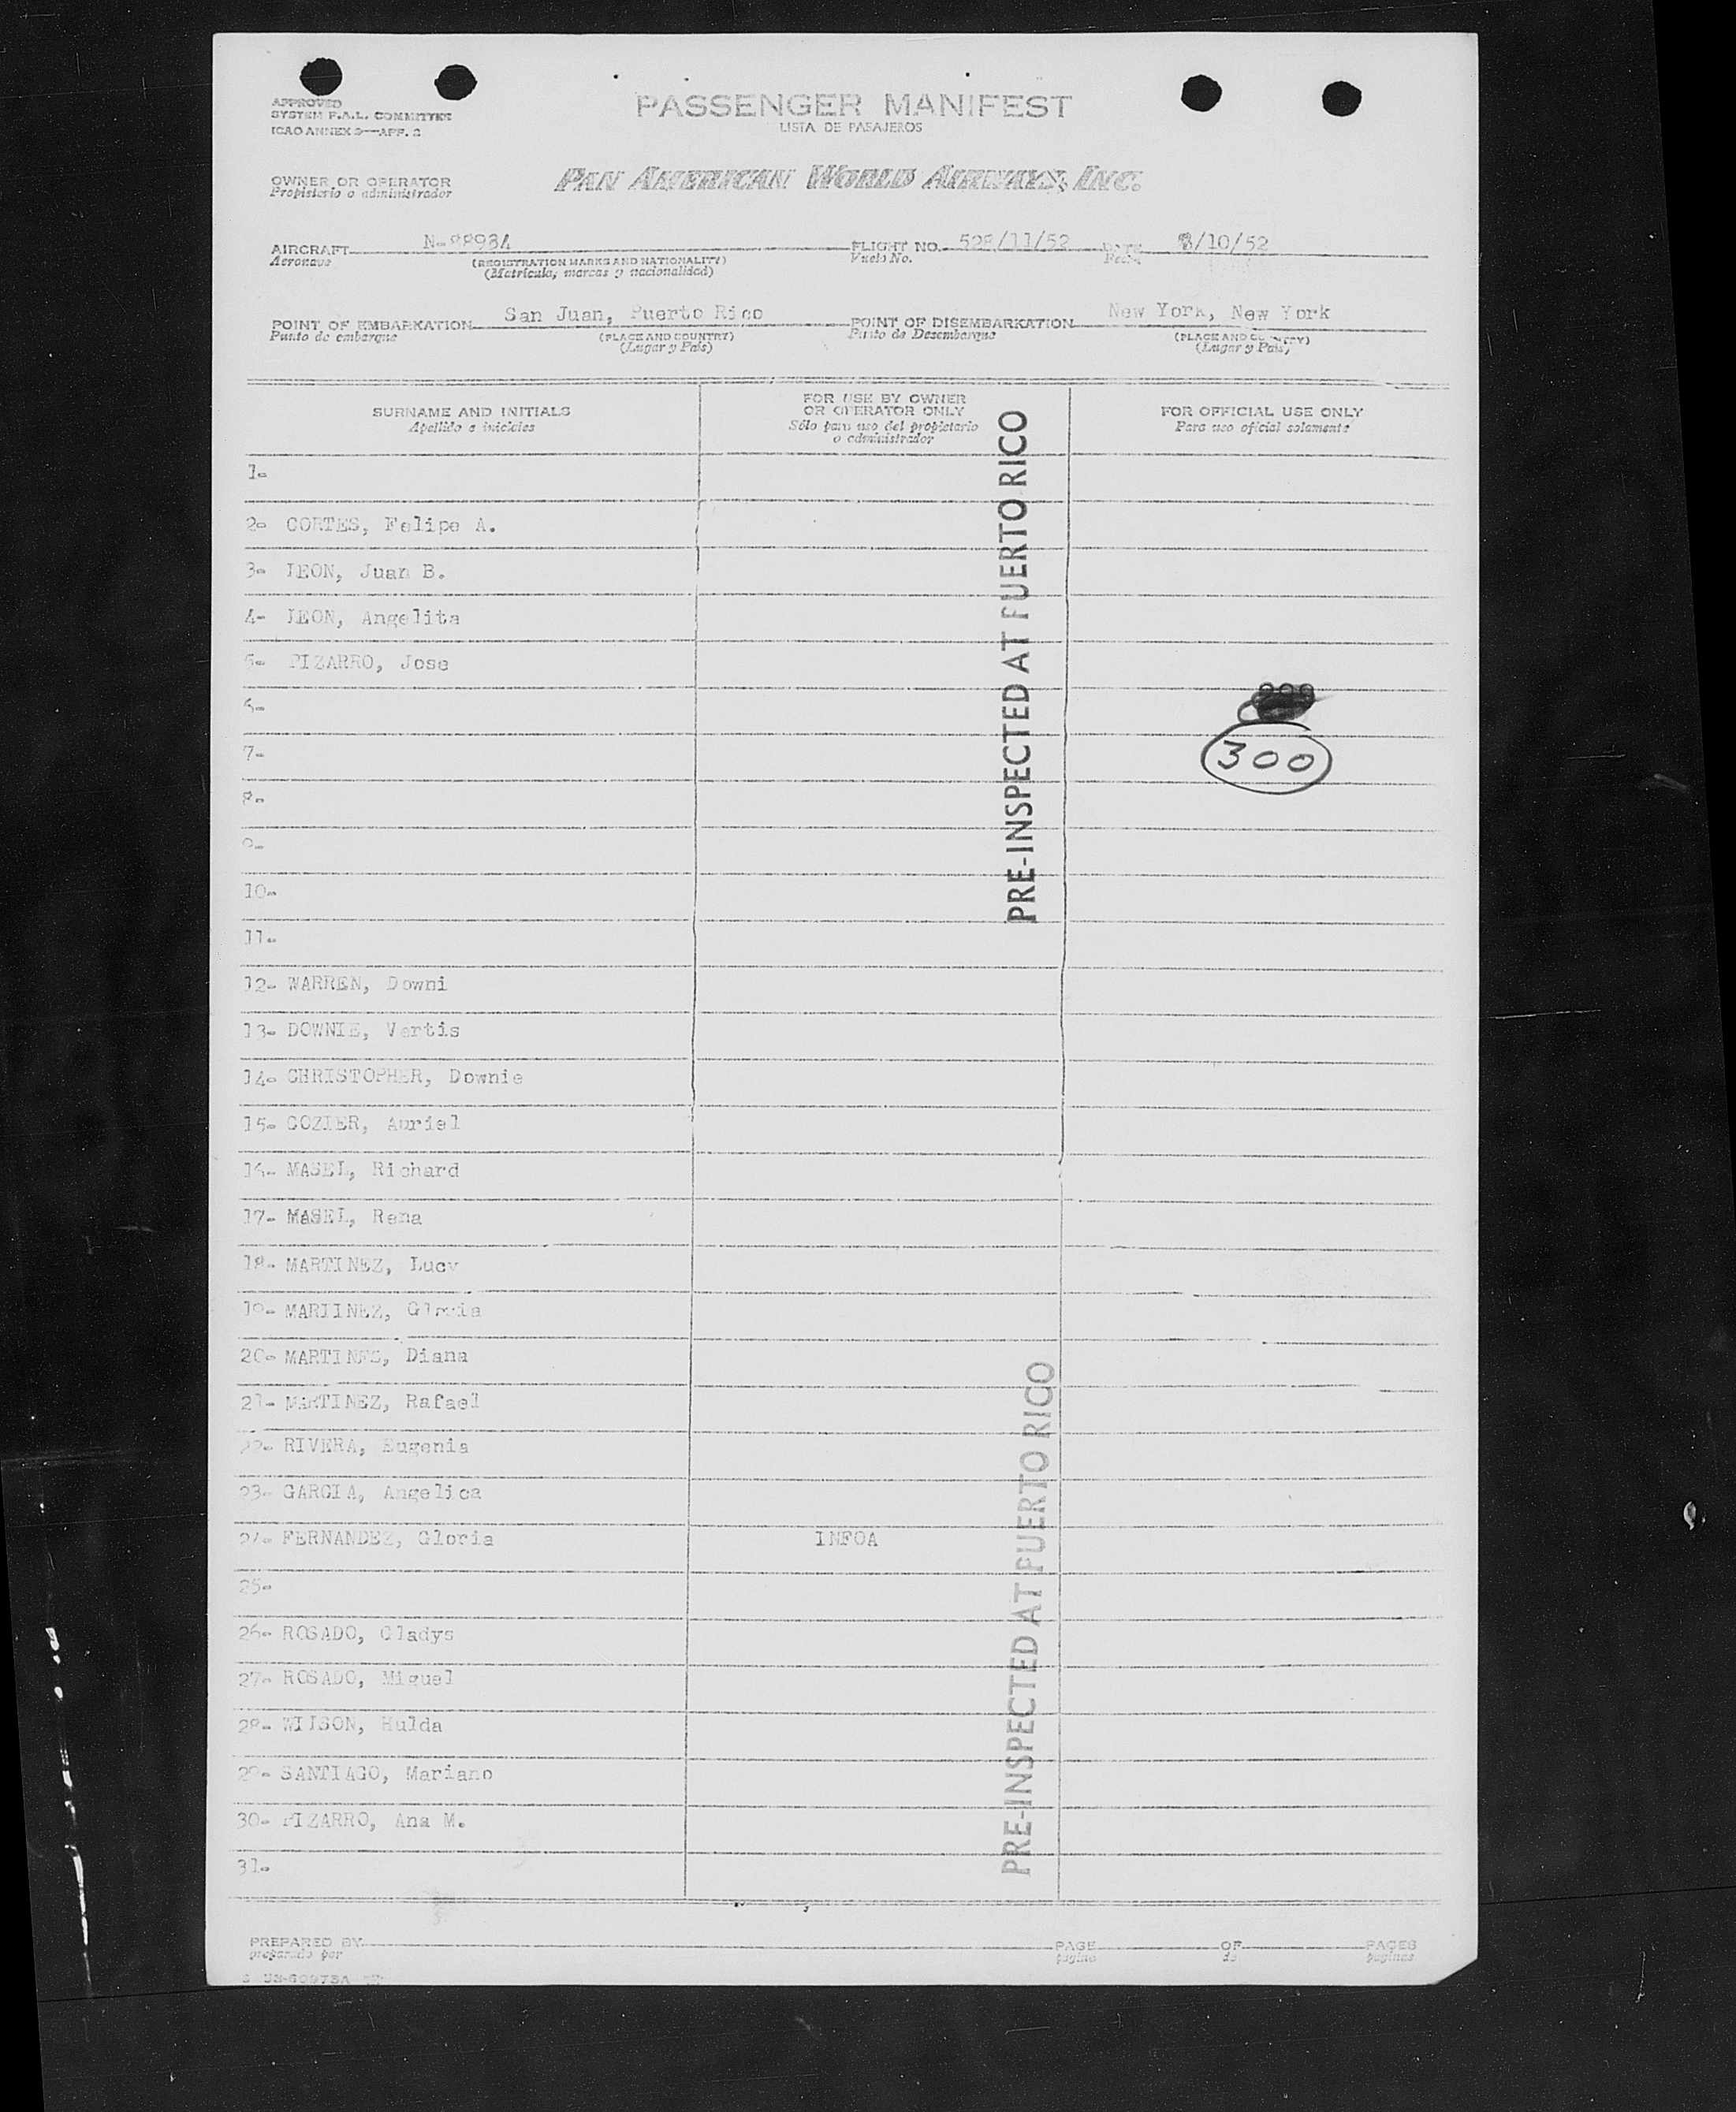 APPROVED
SYSTEM F.A.L. COMMITTEE
ICAO ANNEX 9—APP. 2
PASSENGER MANIFEST
LISTA DE PASAJEROS
OWNER OR OPERATOR
Propietario o administrador
PAN AMERICAN WORLD AIRWAYS, INC.
AIRCRAFT N-88984 FLIGHT NO. 528/11/52 DATE 8/10/52
Aeronave (REGISTRATION MARKS AND NATIONALITY) Vuelo No. Fecha
(Matrícula, marcas y nacionalidad)
POINT OF EMBARKATION San Juan, Puerto Rico POINT OF DISEMBARKATION New York, New York
Punto de embarque (PLACE AND COUNTRY) Punto de Desembarque (PLACE AND COUNTRY)
(Lugar y País) (Lugar y País)
SURNAME AND INITIALS
Apellido e iniciales
FOR USE BY OWNER
OR OPERATOR ONLY
Sólo para uso del propietario
o administrador
FOR OFFICIAL USE ONLY
Para uso oficial solamente
PRE-INSPECTED AT PUERTO RICO
1-
2- CORTES, Felipe A.
3- LEON, Juan B.
4- LEON, Angelita
5- PIZARRO, Jose
6-
7-
300
8-
9-
10-
11-
12- WARREN, Downi
13- DOWNIE, Vertis
14- CHRISTOPHER, Downie
15- COZIER, Auriel
16- MASEL, Richard
17- MASEL, Rena
18- MARTINEZ, Lucy
19- MARTINEZ, Gloria
20- MARTINEZ, Diana
21- MARTINEZ, Rafael
22- RIVERA, Eugenia
23- GARCIA, Angelica
24- FERNANDEZ, Gloria INFOA
25-
26- ROSADO, Gladys
27- ROSADO, Miguel
28- WILSON, Hulda
29- SANTIAGO, Mariano
30- PIZARRO, Ana M.
31-
PRE-INSPECTED AT PUERTO RICO
PREPARED BY PAGE OF PAGES
preparado por página de páginas